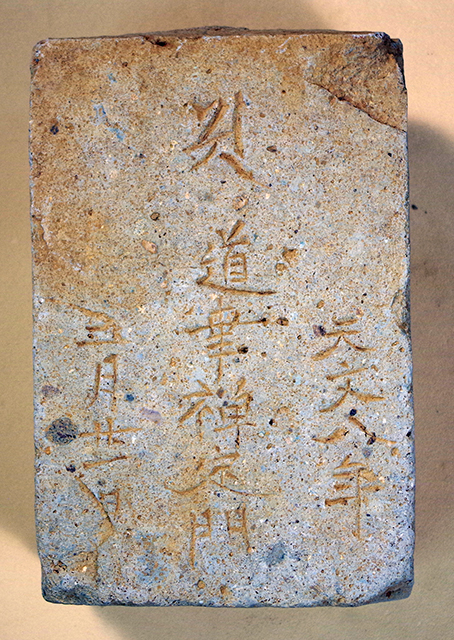 天文八年
道幸禅定門
五月廿一日